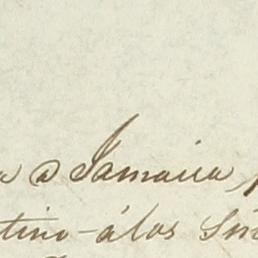 a á Jamaica,
tino-á los Señ